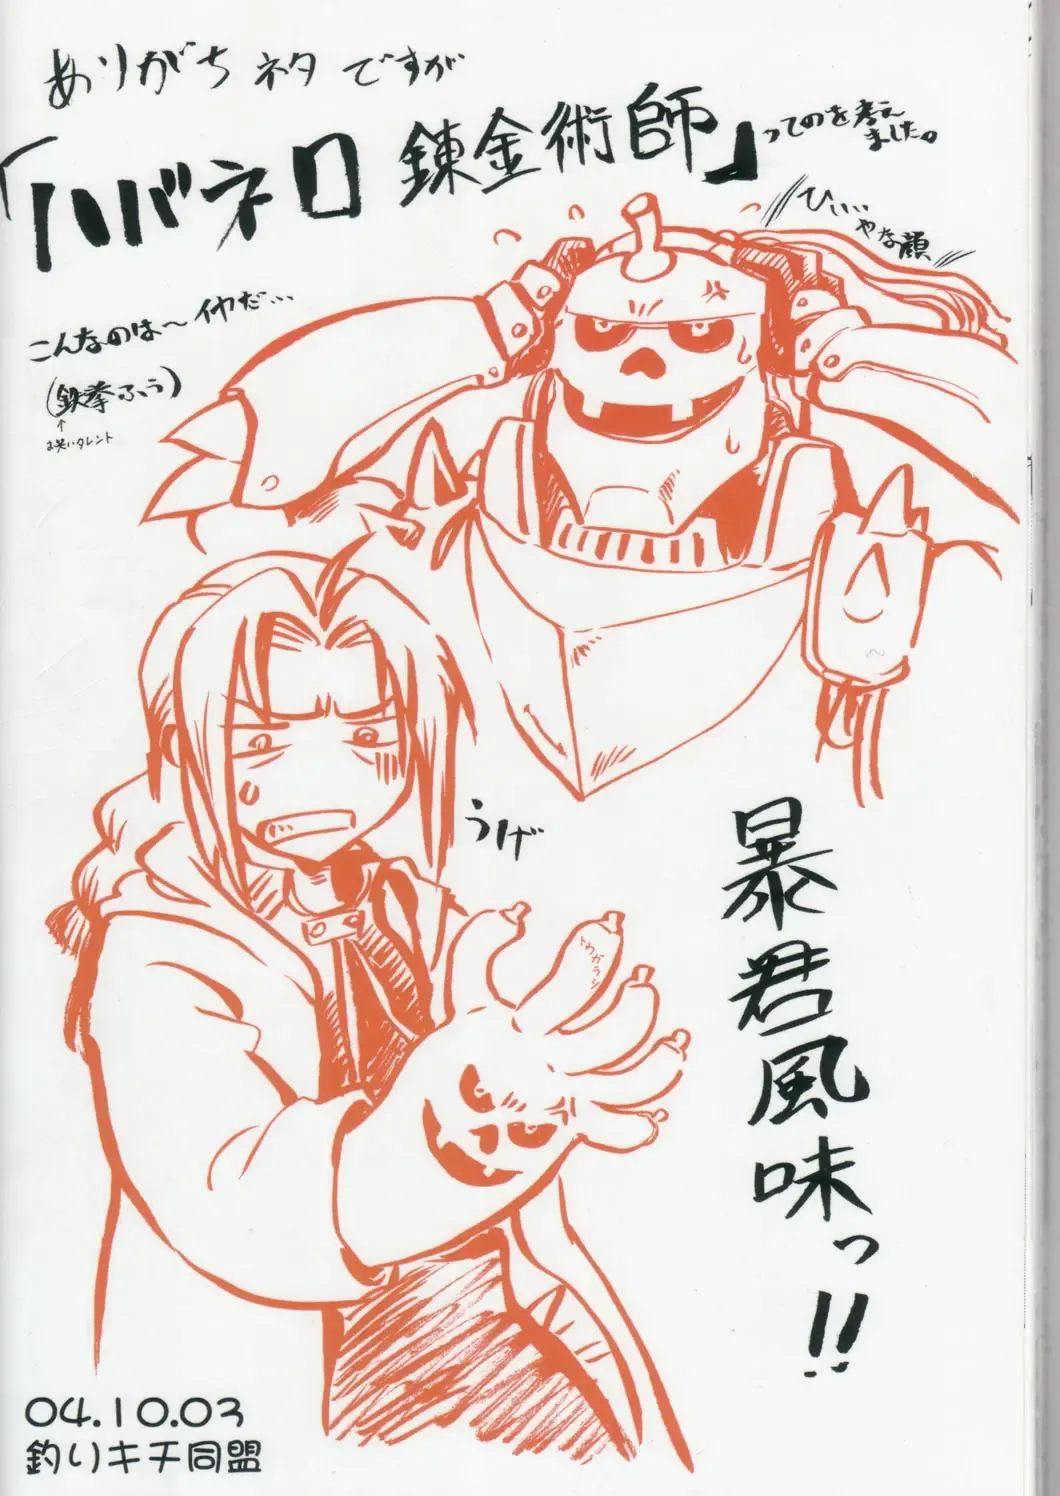 ありがちネタですが
「ハバネロ錬金術師」ってのを考え
ました。
ひぃぃぃ
やな顔
こんなのは〜イヤだ…
(鉄拳ふう)
↑
お笑いタレント
うげ
トウガラシ
暴君風味っ!!
04.10.03
釣りキチ同盟